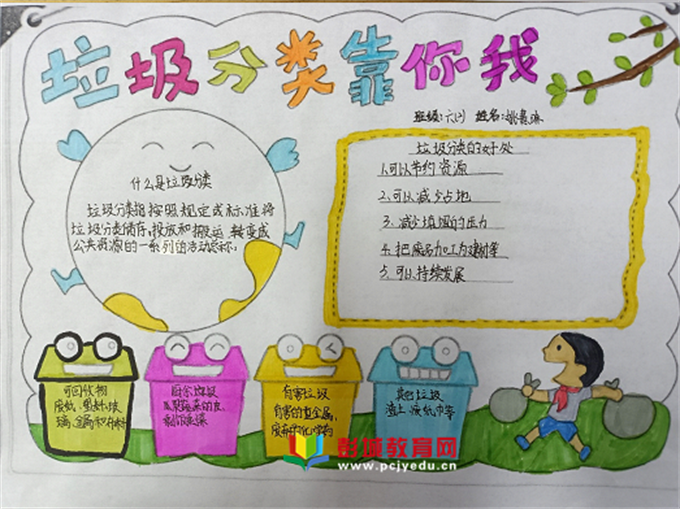 垃圾分类靠你我
班级:六(2) 姓名:
什么是垃圾分类
垃圾分类指按照规定或标准将
垃圾分类储存、投放和搬运,转变成
公共资源的一系列的活动总称。
垃圾分类的好处
1.可以节约资源
2.可以减少占地
3.减少填埋的压力
4.把废品加工为建材等
5.可以持续发展
可回收物
废纸、塑料、玻
璃、金属和布料
厨余垃圾
有害垃圾
有害的重金属,
其他垃圾
渣土、废纸巾等
彭城教育网
www.pcjyedu.cn